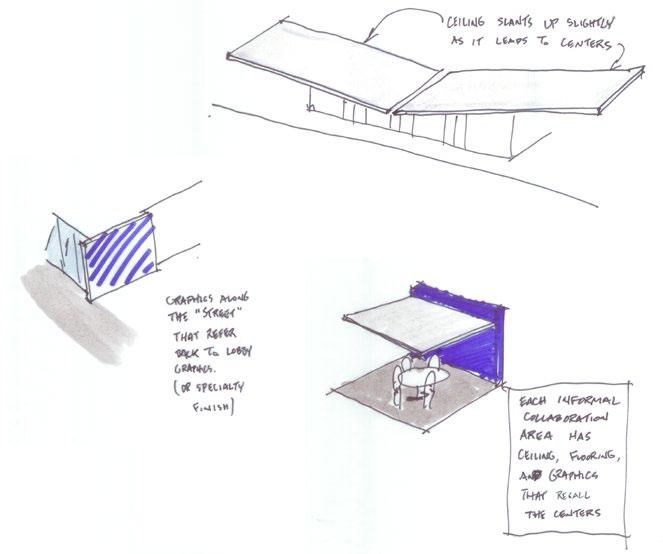 CEILING SLANTS UP SLIGHTLY
AS IT LEADS TO CENTERS
GRAPHICS ALONG
THE "STREET"
THAT REFER
BACK TO LOBBY
GRAPHICS.
(OR SPECIALTY
FINISH)
EACH INFORMAL
COLLABORATION
AREA HAS
CEILING, FLOORING,
AND GRAPHICS
THAT RECALL
THE CENTERS